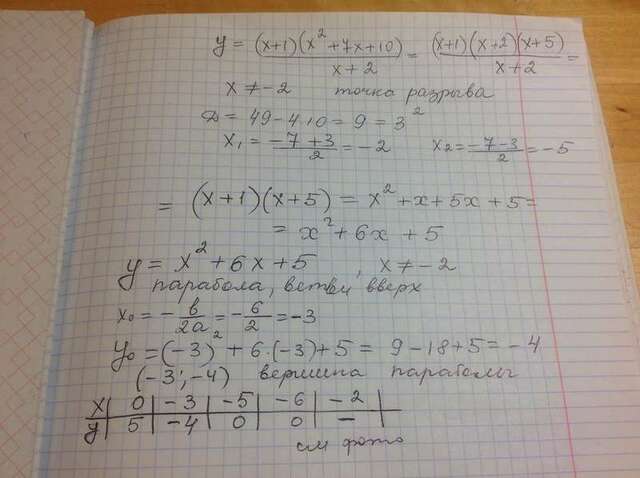 y = (x+1)(x²+7x+10)/(x+2) = (x+1)(x+2)(x+5)/(x+2) =
x ≠ -2 точка разрыва
D = 49 - 4·10 = 9 = 3²
x₁ = (-7+3)/2 = -2 x₂ = (-7-3)/2 = -5
= (x+1)(x+5) = x² + x + 5x + 5 =
= x² + 6x + 5
y = x² + 6x + 5, x ≠ -2
парабола, ветви вверх
x₀ = -b/2a = -6/2 = -3
y₀ = (-3)² + 6·(-3) + 5 = 9 - 18 + 5 = -4
(-3; -4) вершина параболы
x | 0 | -3 | -5 | -6 | -2 |
y | 5 | -4 | 0 | 0 | - |
см фото